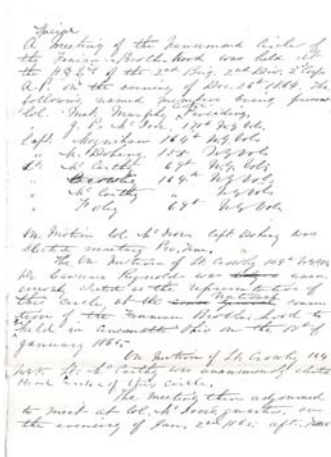 A meeting of the Circle of
the Fenian Brotherhood was held at
the Hd Qrs of the 2nd Brig. 2nd Div. 2nd Corps
A.P. on the evening of Dec. 26th 1864, The
following named members being present
Col. Mat. Murphy Presiding,
" J. P. McIvor, 170th N.Y. Vols.
Capt. 164th N.Y. Vols
" Doheny 155 N.Y. Vols
Lt. McCarthy 69th N.Y. Vols
" Crowly 164th N.Y. Vols
" McCarthy " N.Y. Vols
" 69th N.Y. Vols
On Motion Col. McIvor Capt Doheny was
elected secretary Pro. Tem.
The On Motion of Lt Crowly 164th
Dr. Reynolds was unani-
mously elected as the representative of
this Circle, at the National conven-
tion of the Fenian Brotherhood to
held in Ohio on the of
January 1865.
On Motion of Lt. Crowly 164
Lt. McCarthy was unanimously elected
of this Circle.
The meeting then adjourned
to meet at Col. McIvors quarters, on
the evening of Jan. 2nd 1865.